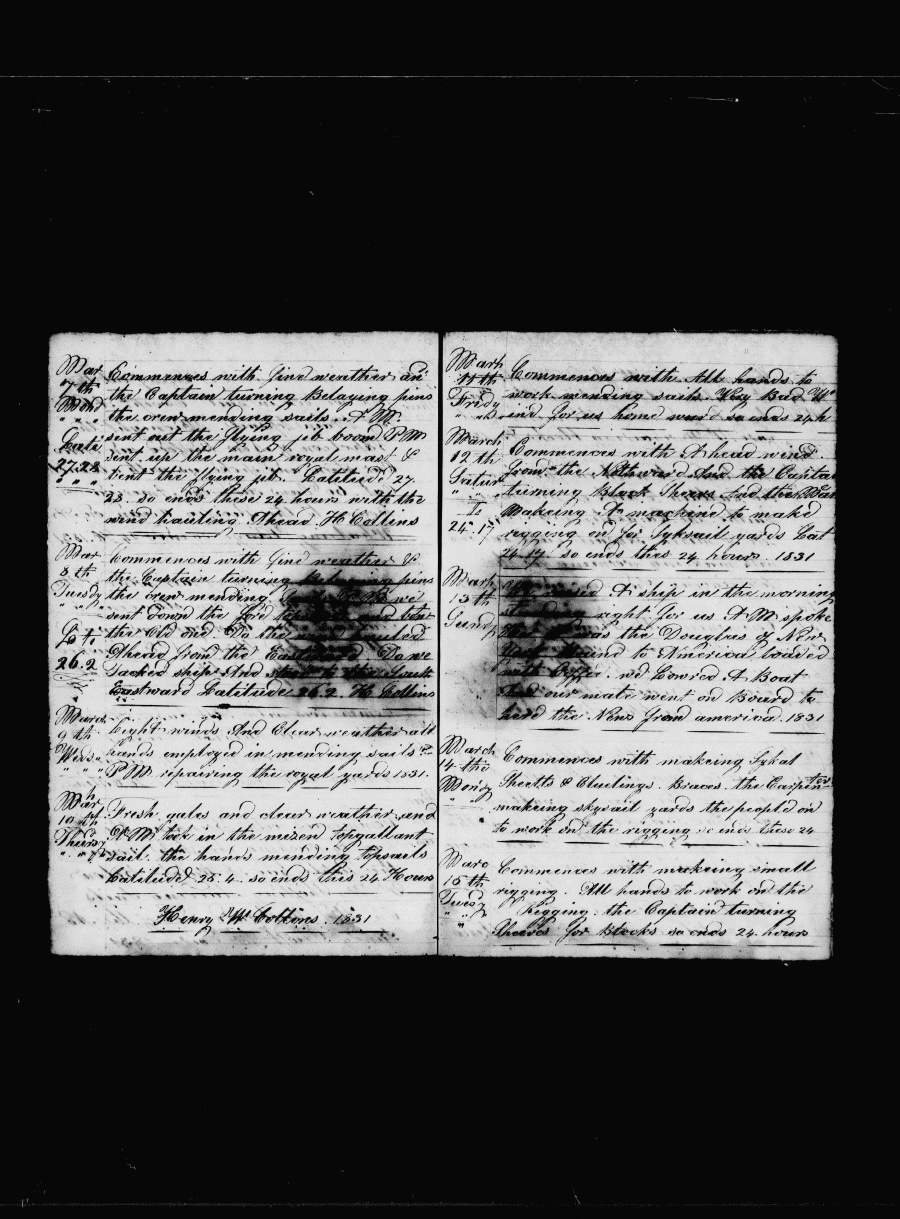 Mar
7 th
Mond
Lati
27.28
Commences with fine weather an
the Captain turning Belaying pins
the crew mending sails. A M
sent out the flying jib boom P M
sent up the main royal mast &
bent the flying jib. Latitude 27.
28. so ends these 24 hours with the
wind hauling Ahead. H Collins
Mar
8 th
Tuesdy
26.2
Commences with fine weather &
the Captain turning Belaying pins
the crew mending we
sent down the for'd and bent
the Old one. the wind hauled
Ahead from the we
tacked ship And to the South
Eastward Latitude 26.2. H Collins
March
9 th
Weds
Light winds And Clear weather all
hands employed in mending sails
P M repairing the royal yards 1831.
Mar
10 th
Thursy
Fresh gales and clear weather and
P M took in the mizen topgallant
sail. the hands mending topsails
Latitude 25.4. so ends this 24 Hours
Henry W Collins. 1831
March
11 th
Fridy
Commences with All hands to
work mending sails. Very Bad W
ind for us home ward so ends 24 h
March
12 th
Satur
24.17
Commences with A head wind
from the Nothward And the Captan
turning Block Sheves And the
Makeing A machine to make
rigging on for Skysail yards Lat
24.17. so ends this 24 hours. 1831
March
13 th
Sund
raised A ship in the morning
right for us A M spoke
was the Douglas of New
to America loaded
with we Lowred A Boat
And our mate went on Board to
here the News from america. 1831
March
14 the
Mondy
Commences with makeing Sykal
Sheetts & Cluelings. Braces. the Carpenter
makeing skysail yards the people on
to work on the rigging so ends these 24
Marc
15 th
Tuesd
Commences with makeing small
rigging. All hands to work on the
Rigging. the Captain turning
Sheaves for Blocks so ends 24. hours